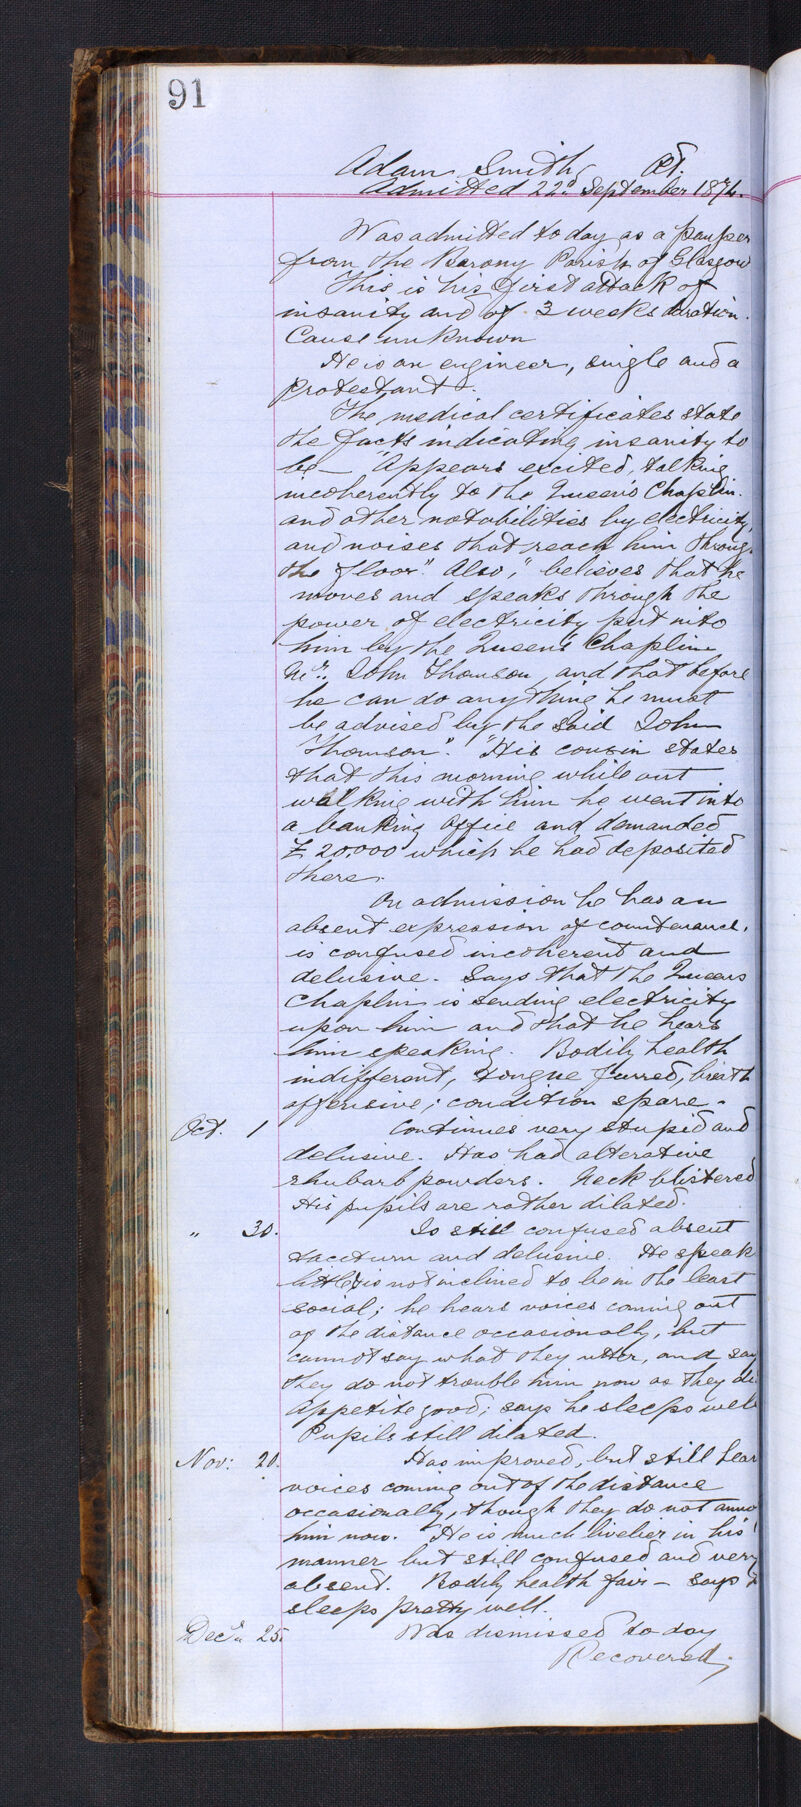 91
Adam Smith Æt.
Admitted 22d. September 1874.
Was admitted to day as a pauper
from the Barony Parish of Glasgow
This is his first attack of
insanity and of 3 weeks duration.
Cause unknown
He is an engineer, single and a
protestant.
The medical certificates state
the facts indicating insanity to
be— "Appears excited, talking
incoherently to the Queen's Chaplin.
and other notabilities by electricity,
and noises that reach him through
the floor". Also, "believes that he
moves and speaks through the
power of electricity put into
him by the Queens Chaplin
Mr. John Thomson and that before
he can do anything he must
be advised by the said John
Thomson". "His cousin states
that this morning while out
walking with him he went into
a banking office and demanded
£20.000 which he had deposited
there.
On admission he has an
absent expression of countenance,
is confused incoherent and
delusive. Says that the Queens
Chaplin is sending electricity
upon him and that he hears
him speaking. Bodily health
indifferent, tongue furred, breath
offensive; condition spare.
Oct. 1 Continues very stupid and
delusive. Has had alterative
rhubarb powders. Neck blistered
His pupils are rather dilated.
" 30. Is still confused absent
taciturn and delusive. He speak
little & is not inclined to be in the least
social; he hears voices coming out
of the distance occasionally, but
cannot say what they utter, and say
they do not trouble him now as they di
Appetite good; says he sleeps well
Pupils still dilated.
Nov: 20. Has improved, but still hear
voices coming out of the distance
occasionally, though they do not anno
him now. He is much livelier in his
manner but still confused and very
absent. Bodily health fair – says
sleeps pretty well.
Decr. 25. Was dismissed to day
Recovered.